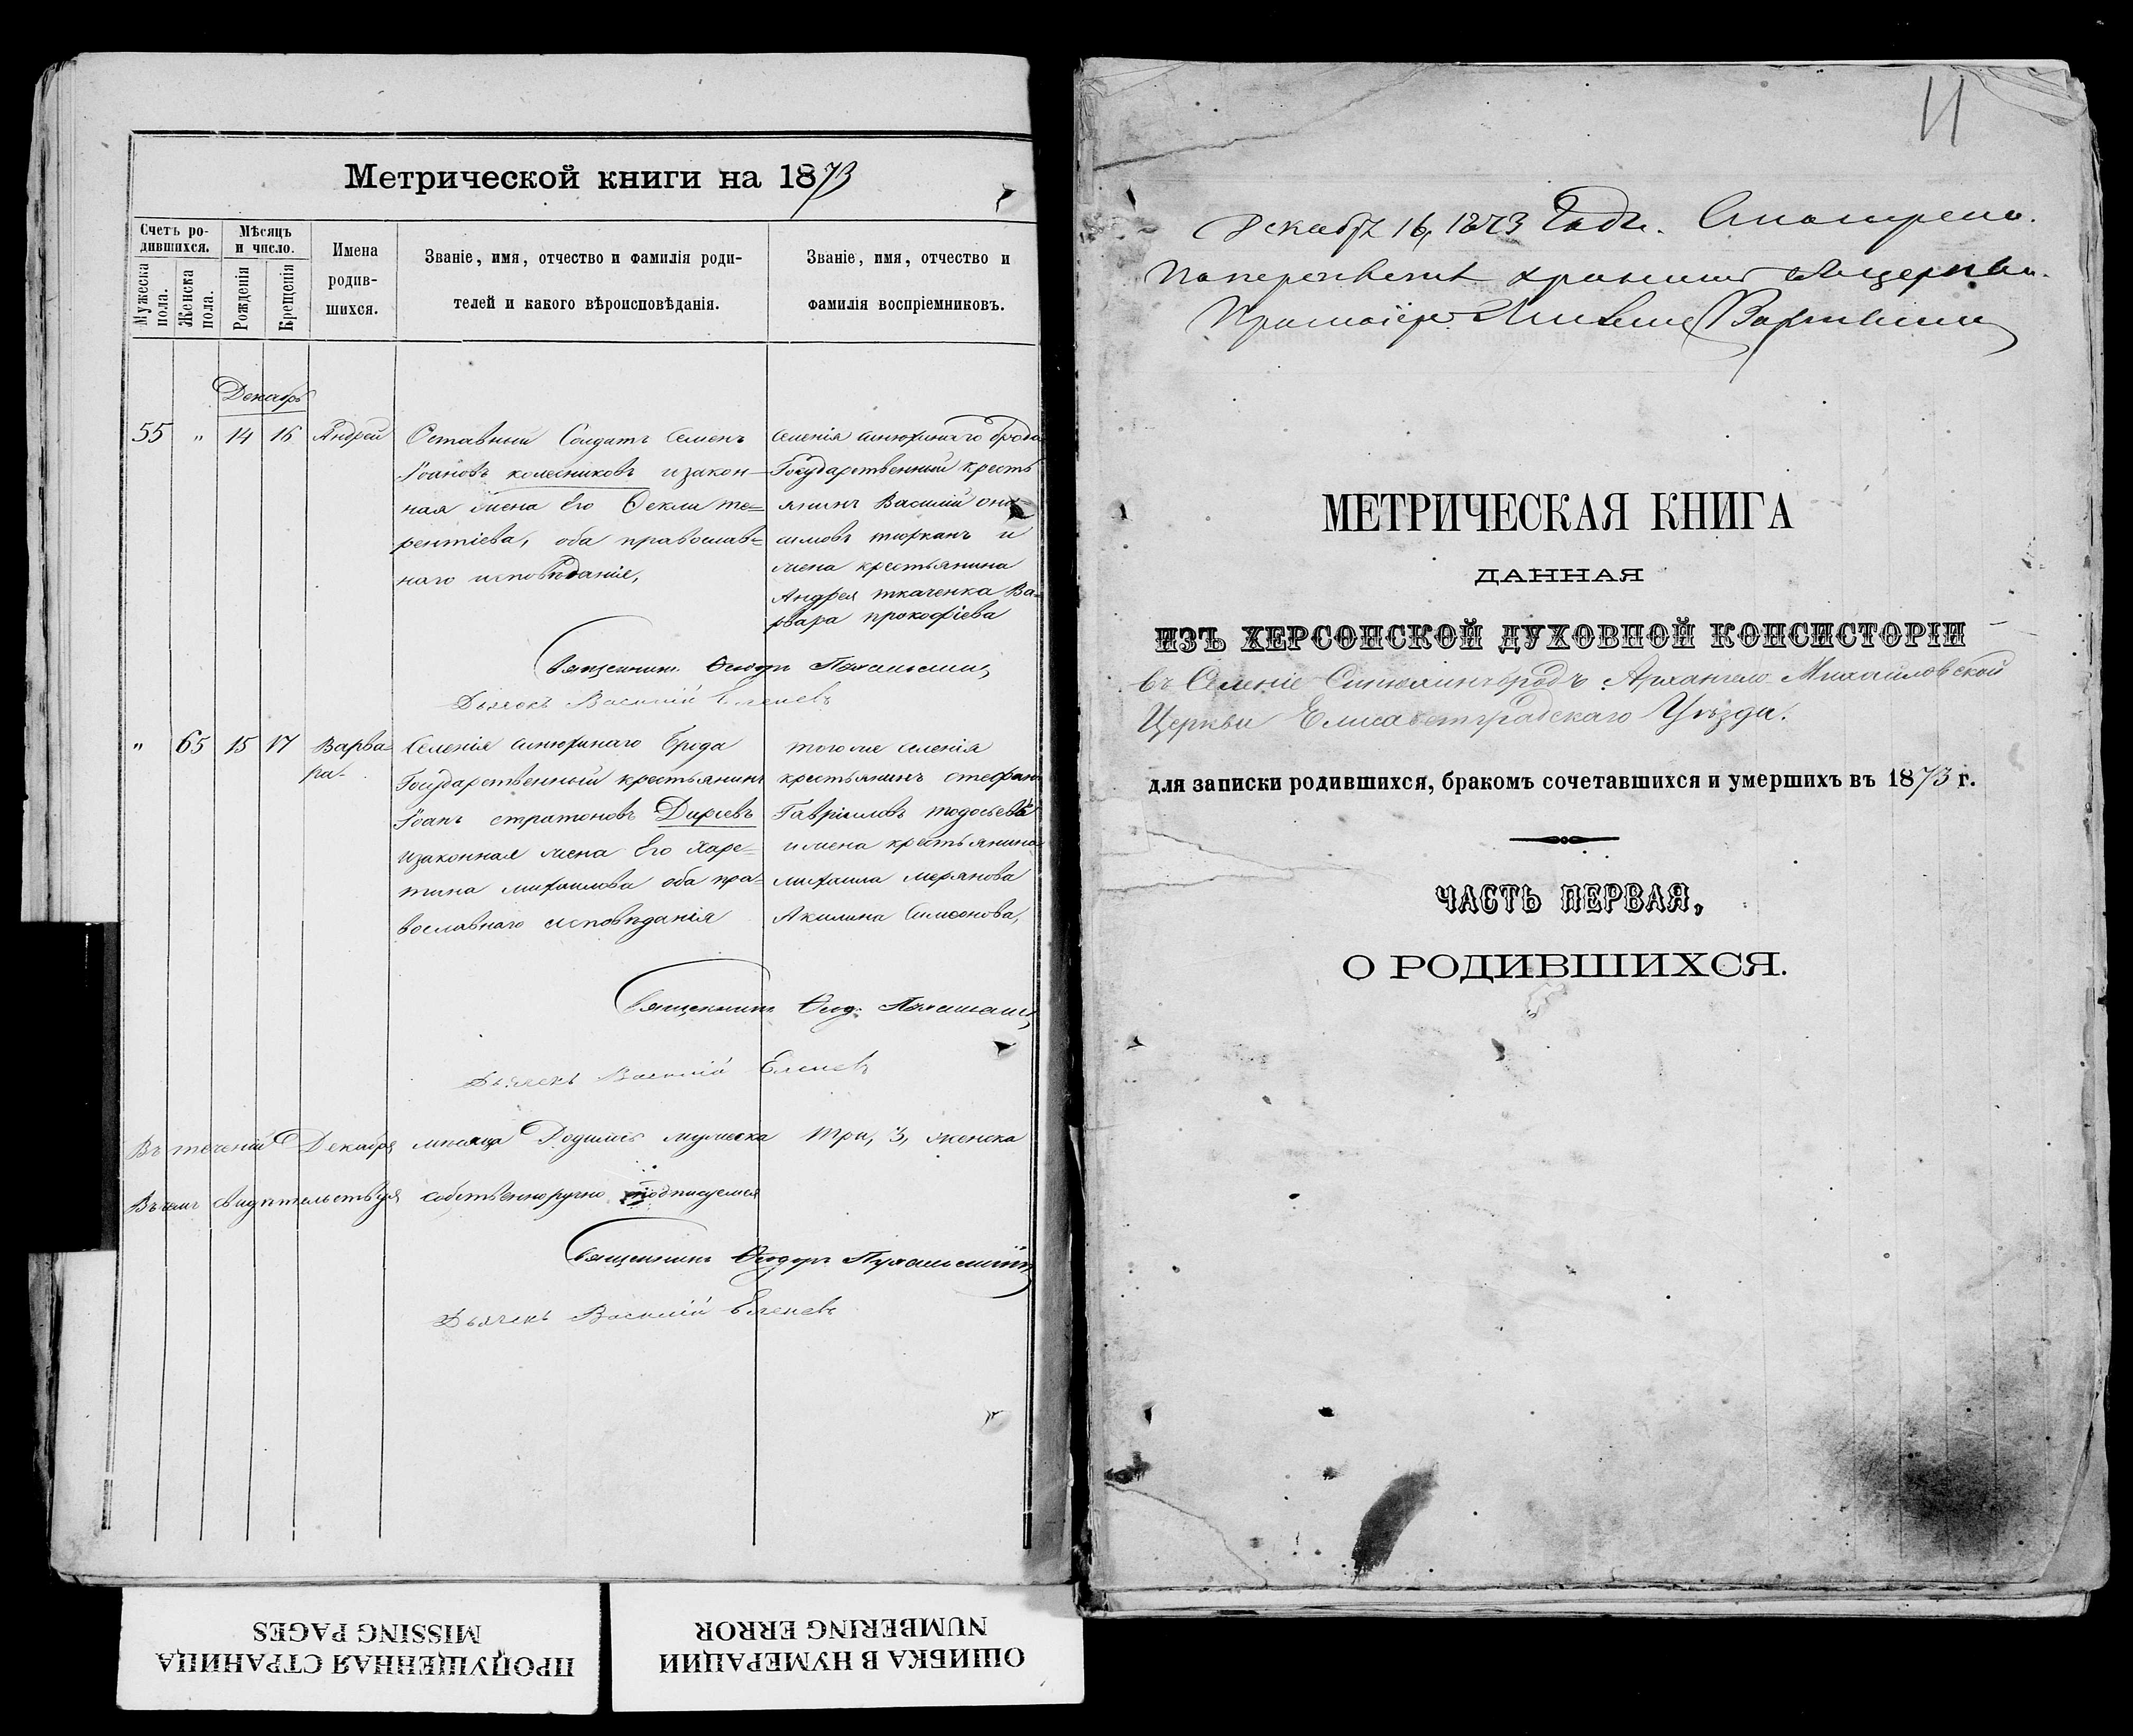 Метрической книги на 1873
Счетъ ро-
дившихся.
Мужеска
пола.
Женска
пола.
Мѣсяцъ
и число.
Рожденія
Крещенія
Имена
родив-
шихся.
Званіе, имя, отчество и фамилія роди-
телей и какого вѣроисповѣданія.
Званіе, имя, отчество и
фамилія воспріемниковъ.
Декабрь
55 " 14 16 Андрей
Отставный Солдатъ Семенъ
Іоановъ колесниковъ изакон-
ная жена Его Фекла те=
рентіева, оба православ=
наго исповѣданія,
Селенія синюхинаго брода
Государственный кресть
янинъ Василій
симовъ и
жена крестьянина
Андрея ткаченка Ва=
рвара прокофіева
Священникъ Ѳеодоръ
Дьячекъ Василій
" 65 15 17 Варва=
ра
Селенія синюхинаго Брода
Государственный крестьянинъ
Іоанъ стратоновъ Диріевъ
изаконная жена Его Харе=
тина михаилова оба пра=
вославнаго исповѣданія
того же селенія
крестьянинъ стефанъ
Гавріиловъ тодосьевъ
ижена крестьянина
михаила мержанова
Акилина Симеонова,
Священникъ Ѳеод:
Дьячекъ Василій
Въ теченіи Декабря мѣсяца Родилось мужеска три, 3, женска
Въ чемъ свидѣтельствуя собственноручно подписуемся
Священникъ Ѳеодоръ
Дьячекъ Василій
ПРОПУЩЕННАЯ СТРАНИЦА
MISSING PAGES
ОШИБКА В НУМЕРАЦИИ
NUMBERING ERROR
11
Декабря 16, 1873 Года. Смотрено.
МЕТРИЧЕСКАЯ КНИГА
ДАННАЯ
ИЗЪ ХЕРСОНСКОЙ ДУХОВНОЙ КОНСИСТОРІИ
въ Селеніе Синюхинъ бродъ Архангело-Михаиловской
Церкви Елисаветградскаго Уѣзда.
для записки родившихся, бракомъ сочетавшихся и умершихъ въ 1873 г.
ЧАСТЬ ПЕРВАЯ,
О РОДИВШИХСЯ.